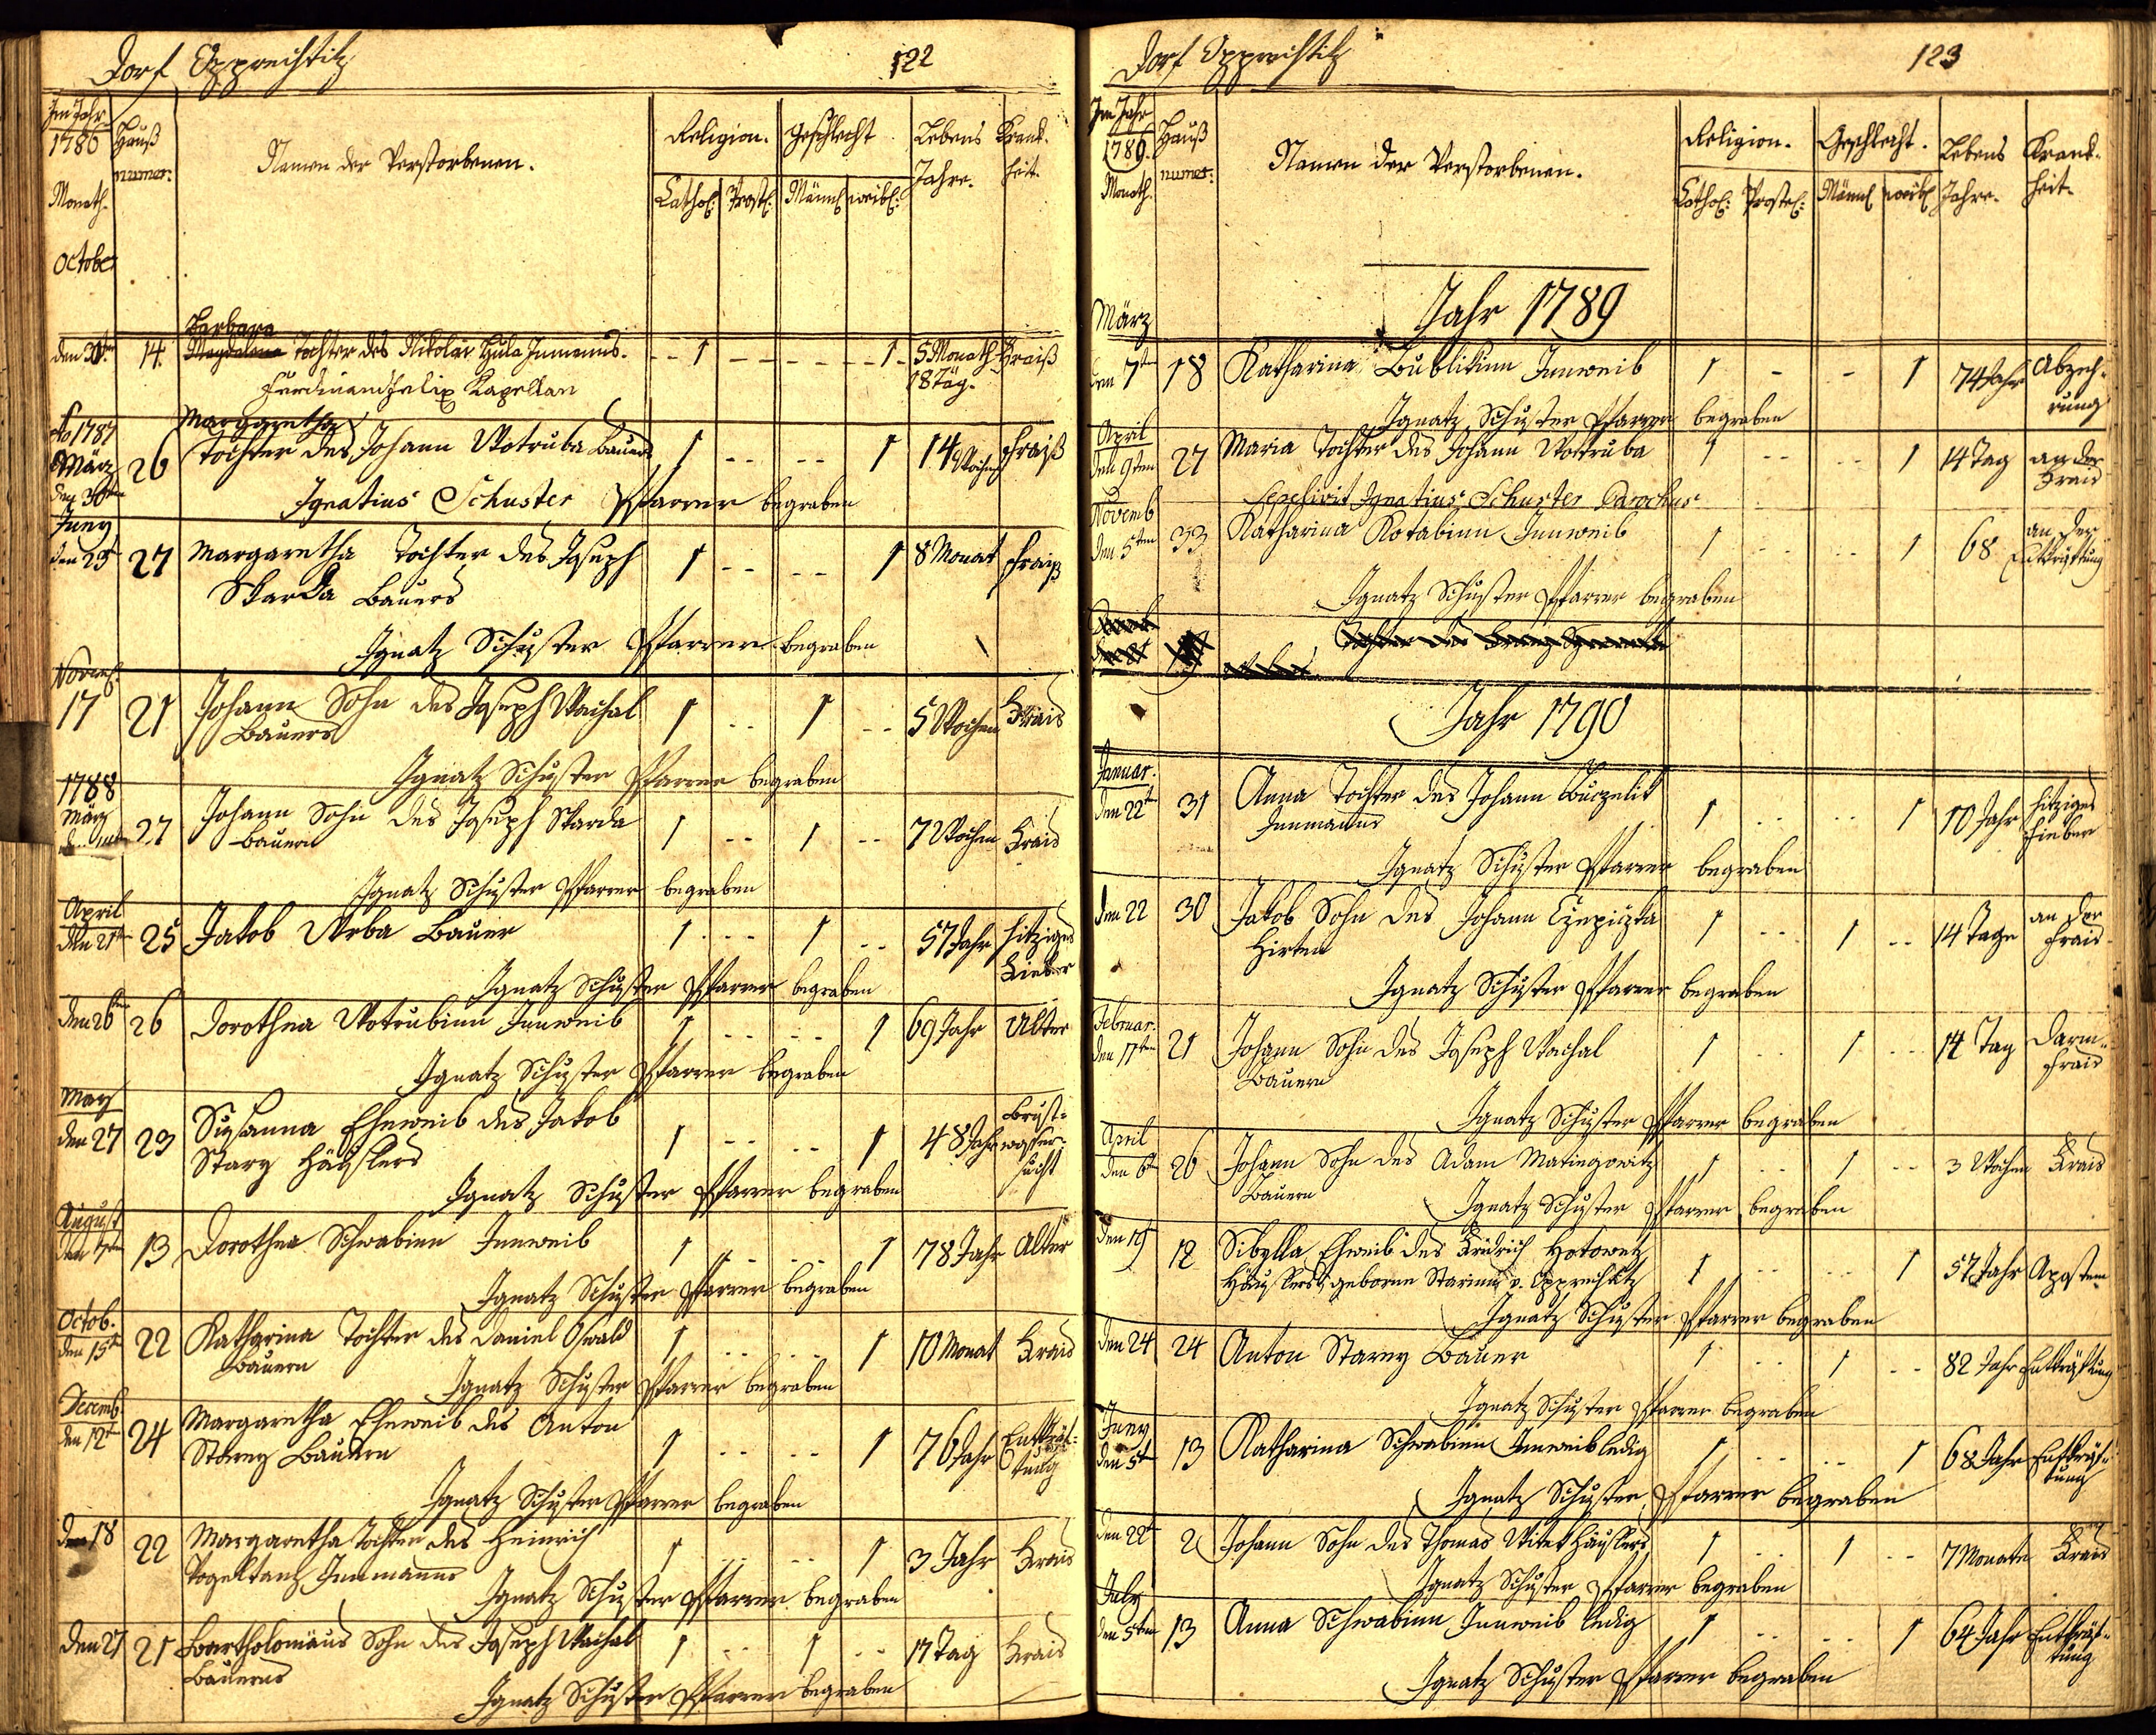 Dorf Opprechtitz 122
Im Jahr 1786 Monath. October
Hauß numer.
Namen der Verstorbenen.
Religion. Geschlecht Lebens Jahre. Krankheit.
Cathol: Protest: Männl weibl:
Barbara
den 30ten 14. Magdalena Tochter des Nikolai Hula Inmanns. 1 1 5 Monath 18 Täg. Fraiß
Ferdinand Felix Kapellan
Ao 1787 März den 30ten 26 Margaretha
Tochter des Johann Wotruba Bauers 1 1 14 Wochen Fraiß
Ignatius Schuster Pfarrer begraben
Juny den 25t 27 Margaretha Tochter des Joseph 1 1 8 Monat Fraiß
Skarda Bauers
Ignatz Schuster Pfarrer begraben
Novemb. 17 21 Johann Sohn des Joseph Wachal 1 1 5 Wochen Frais
Bauers
Ignatz Schuster Pfarrer begraben
1788 März 27 Johann Sohn des Joseph Skarda 1 1 7 Wochen Frais
Bauern
Ignatz Schuster Pfarrer begraben
April den 21t 25 Jakob Wrba Bauer 1 1 57 Jahr hitziges Fieber
Ignatz Schuster Pfarrer begraben
den 26ten 26 Dorothea Wotrubinn Innweib 1 1 69 Jahr Alter
Ignatz Schuster Pfarrer begraben
May den 27 23 Susanna Eheweib des Jakob 1 1 48 Jahr Brust-wassersucht
Stary Häuslers
Ignatz Schuster Pfarrer begraben
August den 7ten 13 Dorothea Schwabinn Innweib 1 1 78 Jahr Alter
Ignatz Schuster Pfarrer begraben
Octob. den 15t 22 Katharina Tochter des Daniel Oswald 1 1 10 Monat Frais
Bauern
Ignatz Schuster Pfarrer begraben
Decemb. den 12t 24 Margaretha Eheweib des Anton 1 1 76 Jahr Entkräftung
Stareg Bauern
Ignatz Schuster Pfarrer begraben
den 18 22 Margaretha Tochter des Heinrich 1 1 3 Jahr Frais
Vogeltanz Innmanns
Ignatz Schuster Pfarrer begraben
den 27 21 Bartholomäus Sohn des Joseph Wachal 1 1 17 Tag Frais
Bauerns
Ignatz Schuster Pfarrer begraben
Dorf Opprechtitz 123
Im Jahr 1789. Monath.
Hauß numer.
Namen der Verstorbenen.
Religion. Geschlecht. Lebens Jahre. Krankheit.
Cathol: Protest: Männl weibl
Jahr 1789
März den 7ten 18 Katharina Bublikinn Innweib 1 1 74 Jahr Abzehrung
Ignatz Schuster Pfarrer begraben
April den 9ten 27 Maria Tochter des Johann Wottruba 1 1 14 Tag an der Frais
Sepelivit Ignatius Schuster Parochus
Novemb den 5ten 33 Katharina Kotabinn Innweib 1 1 68 an der Entkräftung
Ignatz Schuster Pfarrer begraben
Jahr 1790
Januar. den 22t 31 Anna Tochter des Johann Buczelik 1 1 10 Jahr hitziges Fieber
Innmanns
Ignatz Schuster Pfarrer begraben
den 22 30 Jakob Sohn des Johann Czepiczka 1 1 14 Tage an der Frais
Hirten
Ignatz Schuster Pfarrer begraben
Februar. den 17ten 21 Johann Sohn des Joseph Wachal 1 1 14 Tag Darm-Frais
Bauern
Ignatz Schuster Pfarrer begraben
April den 6t 26 Johann Sohn des Adam Matiegowitz 1 1 3 Wochen Frais
Bauern
Ignatz Schuster Pfarrer begraben
den 19 12 Sibylla Eheweib des Fridrich Hotowetz
Häuslers, geborne Starinn v. Opprechtitz 1 1 57 Jahr Apostem
Ignatz Schuster Pfarrer begraben
den 24 24 Anton Stareg Bauer 1 1 82 Jahr Entkräftung
Ignatz Schuster Pfarrer begraben
Juny den 5t 13 Katharina Schwabinn Innweib ledig 1 1 68 Jahr Entkräftung
Ignatz Schuster Pfarrer begraben
den 22t 2 Johann Sohn des Thomas Witek Häuslers 1 1 7 Monate Frais
Ignatz Schuster Pfarrer begraben
July den 5ten 13 Anna Schwabinn Innweib ledig 1 1 64 Jahr Entkräftung
Ignatz Schuster Pfarrer begraben